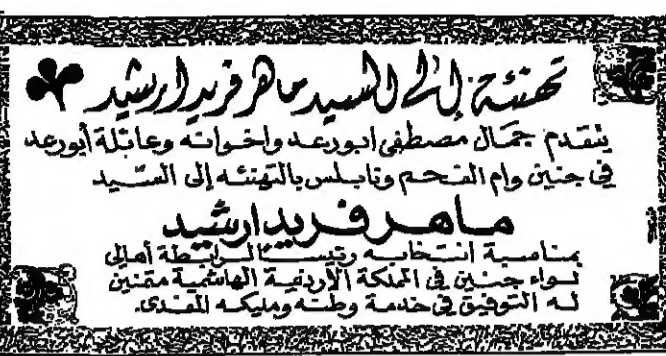 تهنئة إلى السيد ماهر فريد ارشيد
يتقدم جمال مصطفى ابورعد واخوانه وعائلة أبورعد
في جنين وام الفحم ونابلس بالتهنئه إلى السّيد
ماهر فريد ارشيد
بمناسبة انتخابه رئيسًا لرابطة أهالي
لواء جنين في المملكة الأردنية الهاشمية متمنين
له التوفيق في خدمة وطنه ومليكه المفدى.